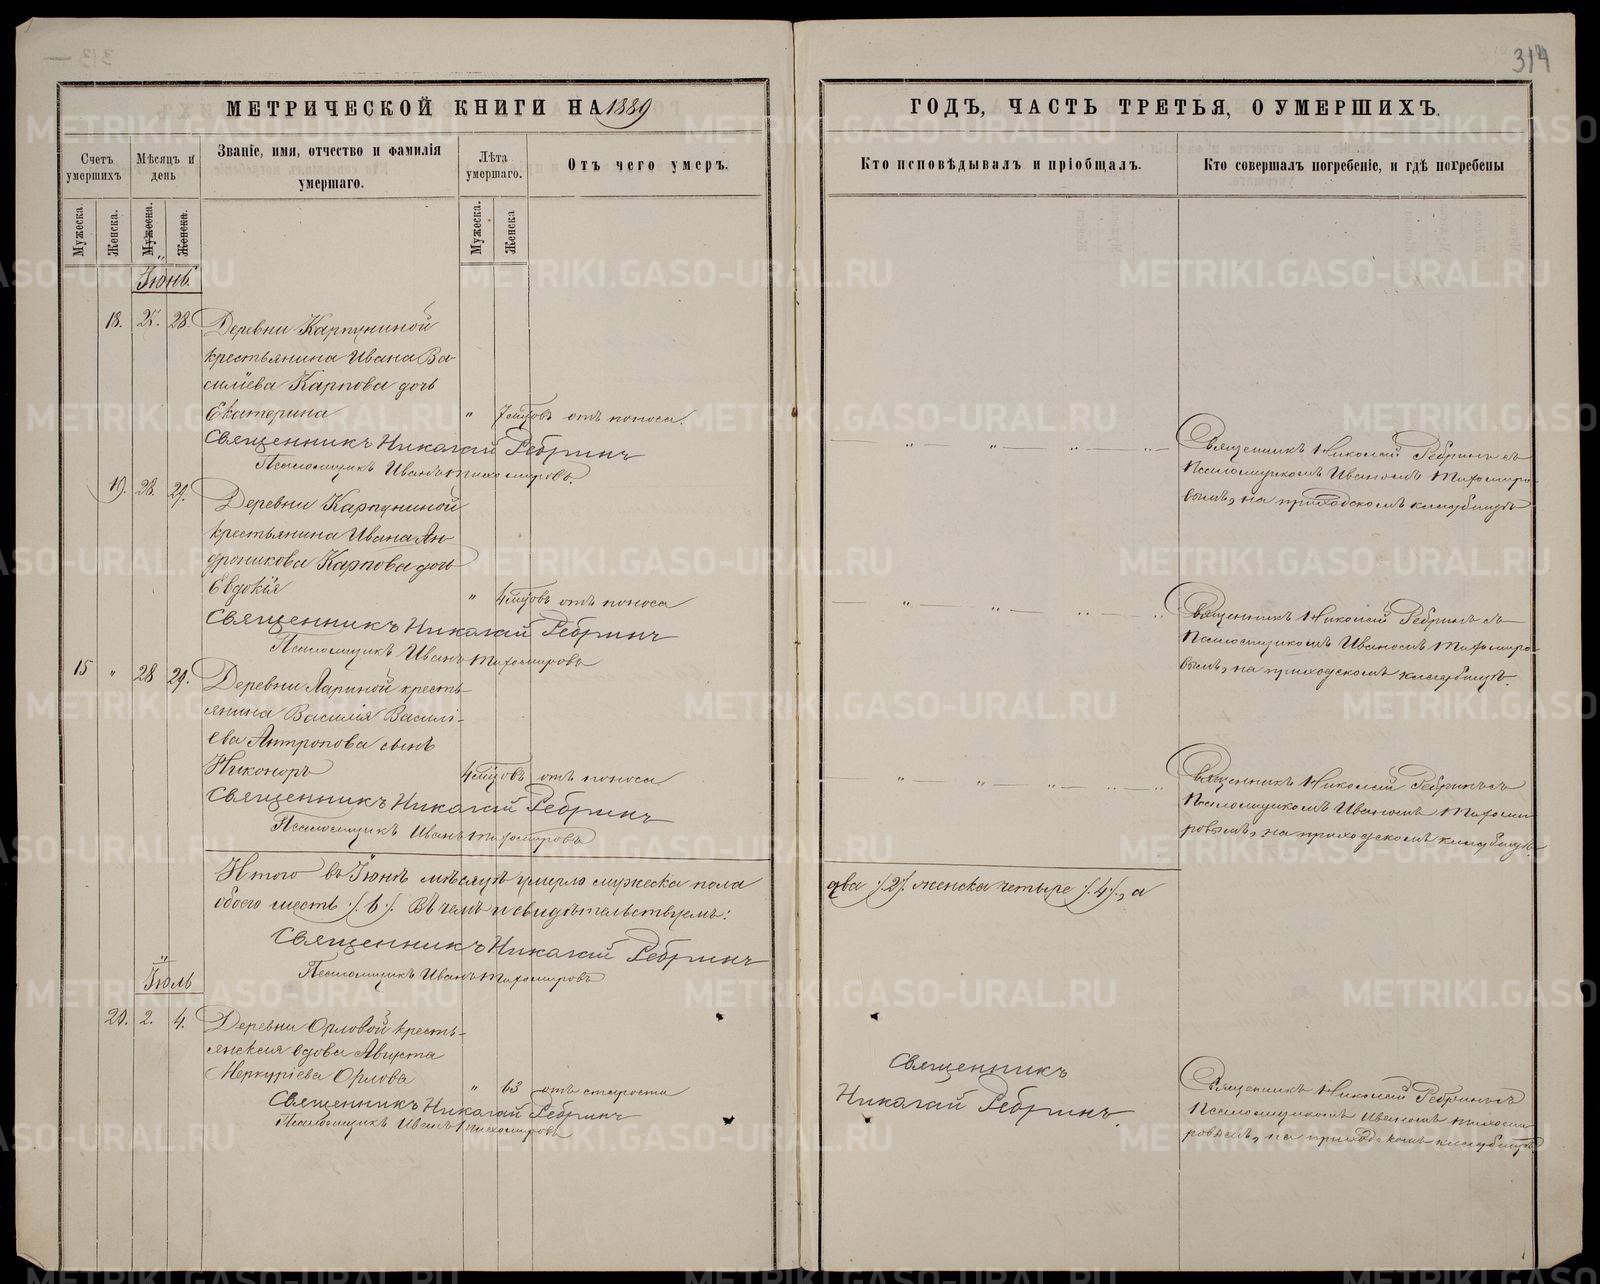 314
МЕТРИЧЕСКОЙ КНИГИ НА 1889
ГОДЪ, ЧАСТЬ ТРЕТЬЯ, О УМЕРШИХЪ.
Счетъ умершихъ
Мѣсяцъ и день
Званіе, имя, отчество и фамилія умершаго.
Лѣта умершаго.
Отъ чего умеръ.
Кто исповѣдывалъ и пріобщалъ.
Кто совершалъ погребеніе, и гдѣ погребены
Мужеска.
Женска.
Мужеска.
Женска.
Мужеска.
Женска
Іюнь.
18. 25. 28. Деревни Карпуниной
крестьянина Ивана Ва-
силіева Карпова дочь
Екатерина " 7 мцовъ отъ поноса.
Священникъ Николай Ребринъ
Псаломщикъ Иванъ Тихомировъ.
Священникъ Николай Ребринъ съ
Псаломщикомъ Иваномъ Тихомиро-
вымъ, на приходскомъ кладбищѣ
19. 28. 29. Деревни Карпуниной
крестьянина Ивана Ан-
дроникова Карпова дочь
Евдокія " 4 мцовъ отъ поноса
Священникъ Николай Ребринъ
Псаломщикъ Иванъ Тихомировъ
Священникъ Николай Ребринъ съ
Псаломщикомъ Иваномъ Тихомиро-
вымъ, на приходскомъ кладбищѣ.
15 " 28 29. Деревни Лариной кресть-
янина Василія Василі-
ева Антропова сынъ
Никоноръ 4 мцовъ отъ поноса
Священникъ Николай Ребринъ
Псаломщикъ Иванъ Тихомировъ
Священникъ Николай Ребринъ съ
Псаломщикомъ Иваномъ Тихоми-
ровымъ, на приходскомъ кладбищѣ.
Итого въ Іюнѣ мѣсяцѣ умерло мужеска пола
два /2/. женска четыре /.4/., а
обоего шесть /.6/. Въ чемъ и свидѣтельствуемъ:
Священникъ Николай Ребринъ
Псаломщикъ Иванъ Тихомировъ
Іюль
20. 2. 4. Деревни Орловой кресть-
янская вдова Августа
Меркуріева Орлова " 63 отъ старости
Священникъ Николай Ребринъ
Псаломщикъ Иванъ Тихомировъ
Священникъ
Николай Ребринъ.
Священникъ Николай Ребринъ съ
Псаломщикомъ Иваномъ Тихоми-
ровымъ, на приходскомъ кладбищѣ
METRIKI.GASO-URAL.RU